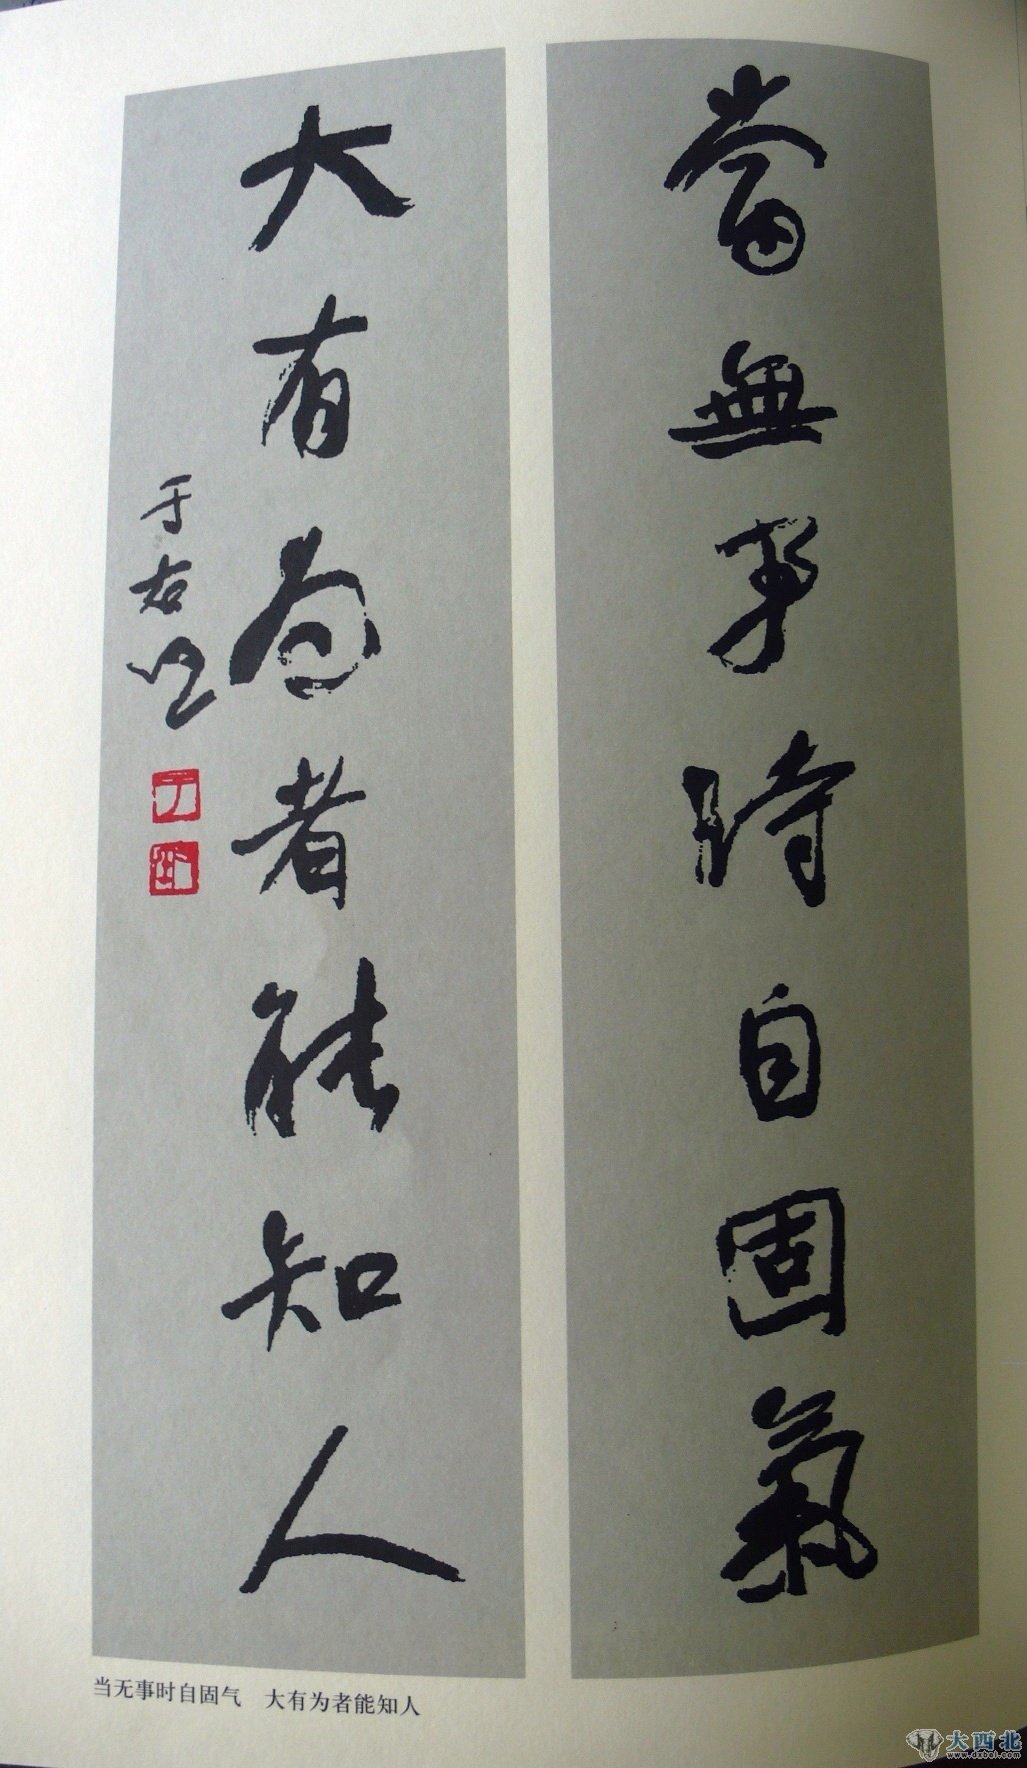 當無事時自固氣
大有為者能知人
于右任
当无事时自固气　大有为者能知人
大西北
www.dxbei.com